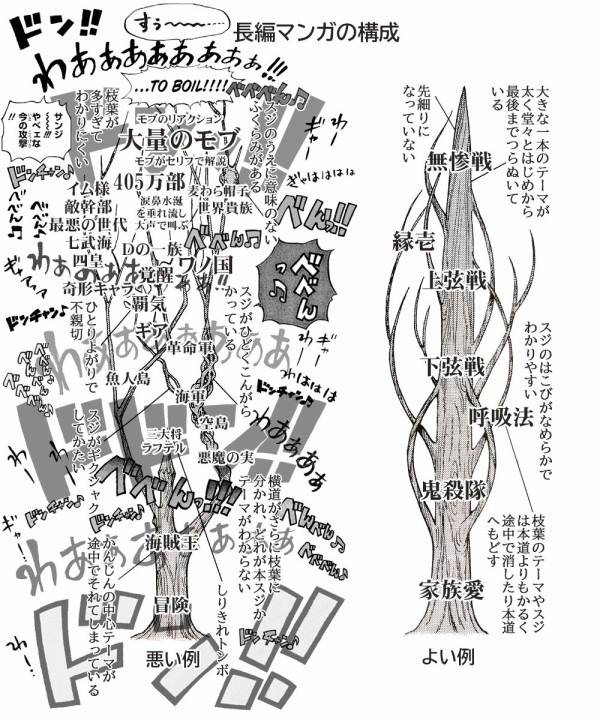 長編マンガの構成
ドン!!
すぅ〜〜〜……
わあぁあぁあぁぁ!!!
...TO BOIL!!!!
サンジ
〜〜!!
やべェな
今の攻撃
枝葉が
多すぎて
わかりにくい
モブのリアクション
大量のモブ
モブがセリフで解説
スジのうえに意味のない
ふくらみがある
べべべん♪
ギャー
わー
ぎゃはははは
405万部
涙鼻水涎
を垂れ流し
大声で叫ぶ
麦わら帽子
世界貴族
イム様
敵幹部
最悪の世代
七武海
四皇
奇形キャラ
Dの一族
覚醒
ワノ国
覇気
ギア
ドンチャン♪
べんっ!!
べべべん♪
ひとりよがりで
不親切
スジがひどくこんがら
かっている
革命軍
魚人島
海軍
空島
三大将
ラフテル
悪魔の実
スジがギクシャク
してかたい
わははは
ドドン!!
べべんっ!!!
横道がさらに枝葉に
分かれ、どれが本スジか
テーマがわからない
海賊王
冒険
かんじんの中心テーマが
途中でそれてしまっている
しりきれトンボ
ドン!!
悪い例
先細りに
なっていない
大きな一本のテーマが
太く堂々とはじめから
最後までつらぬいて
いる
無惨戦
縁壱
上弦戦
スジのはこびがなめらかで
わかりやすい
下弦戦
呼吸法
鬼殺隊
枝葉のテーマやスジ
は本道よりもかるく
途中で消したり本道
へもどす
家族愛
よい例